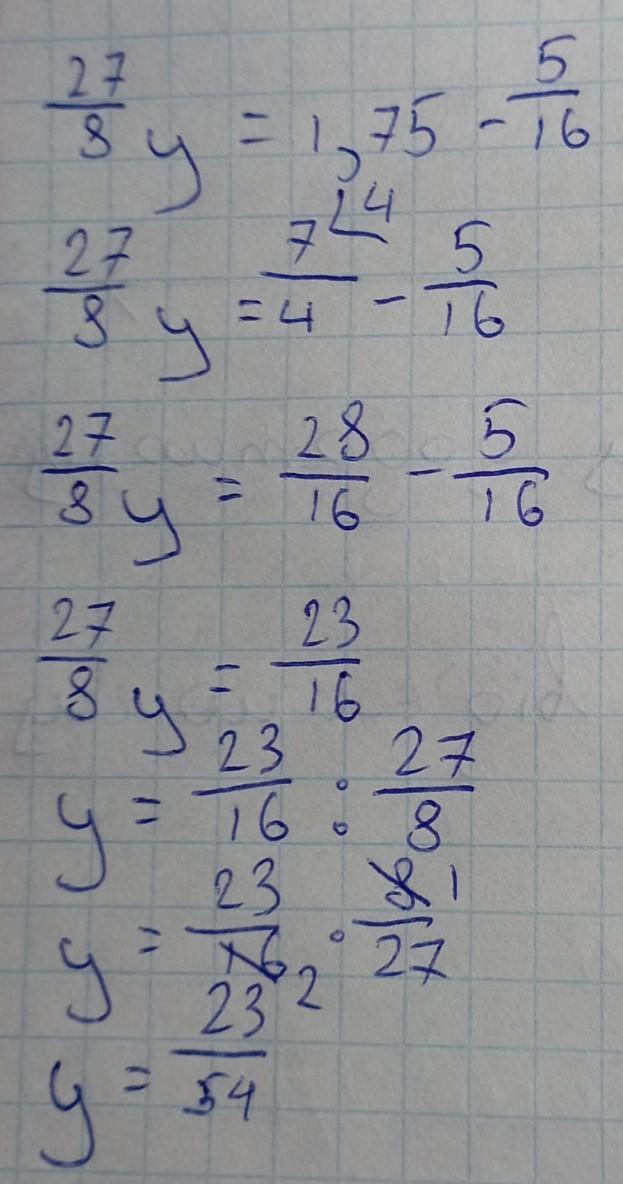 27/8 y = 1,75 - 5/16
27/8 y = 7/4 ∠4 - 5/16
27/8 y = 28/16 - 5/16
27/8 y = 23/16
y = 23/16 : 27/8
y = 23/16 2 · 8 1/27
y = 23/54